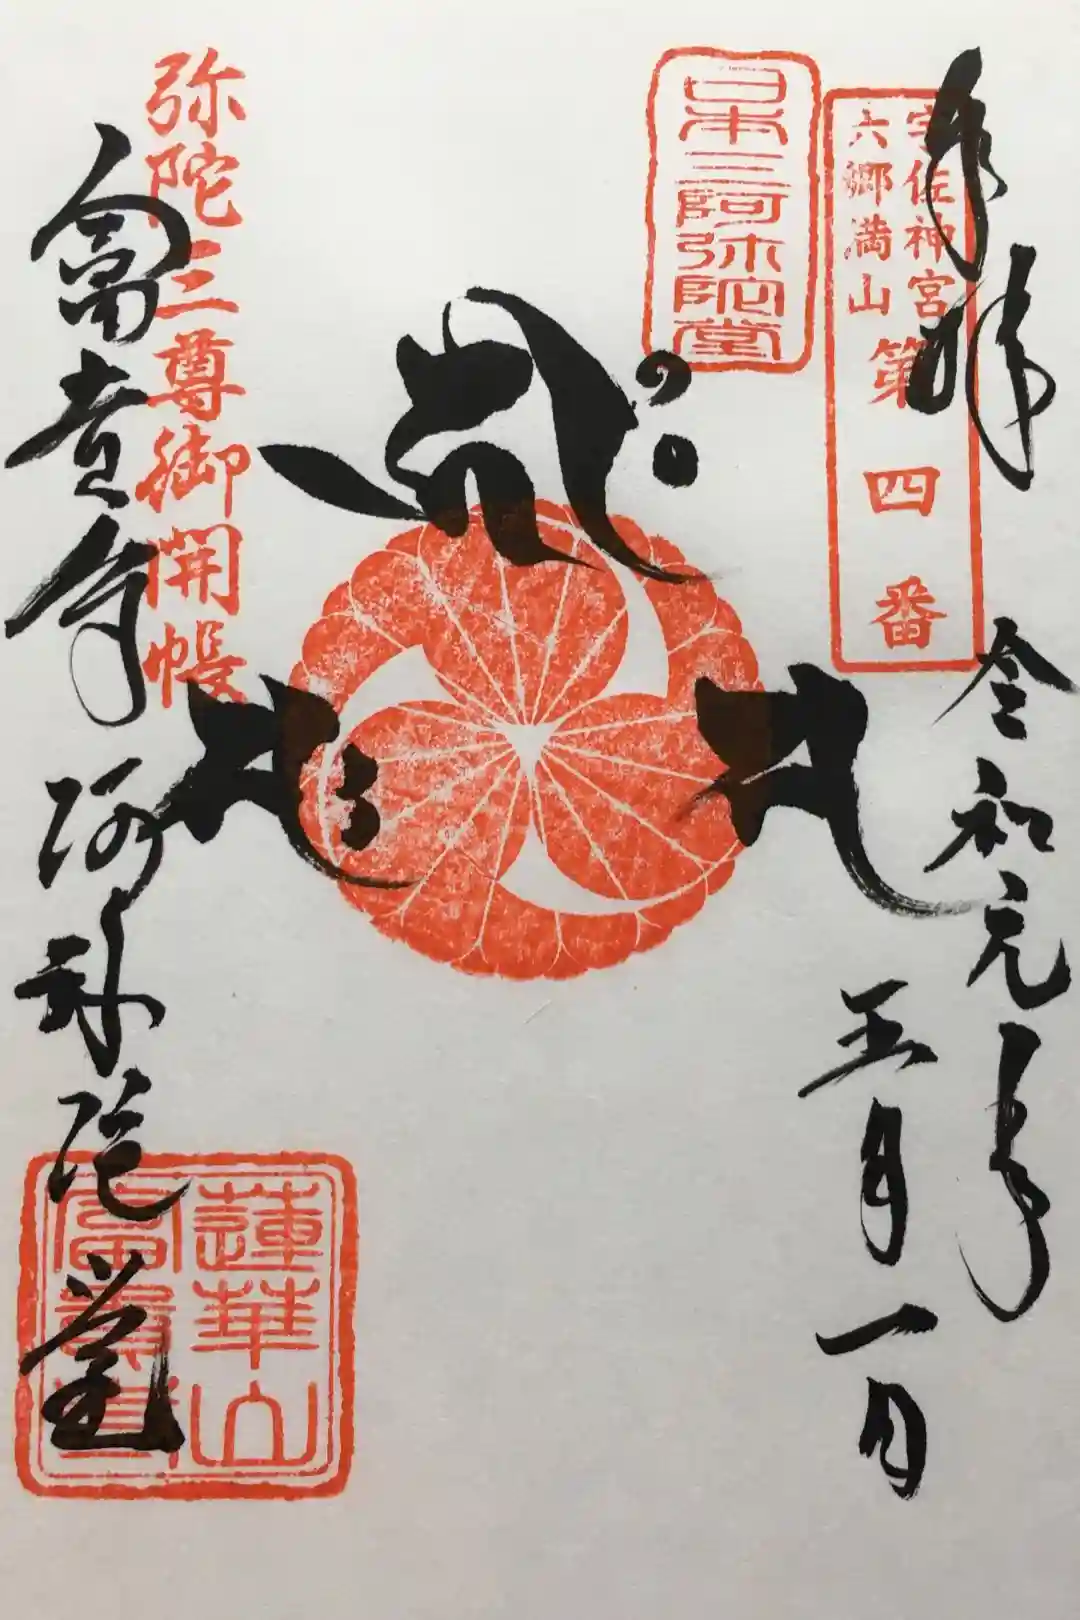 奉拝
令和元年
五月一日
宇佐神宮
六郷満山
第四番
日本三阿弥陀堂
弥陀三尊御開帳
富貴寺 阿弥陀堂
蓮華山
富貴寺